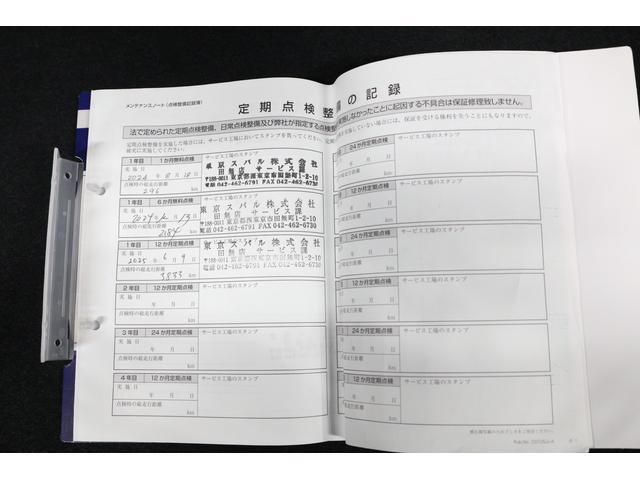 メンテナンスノート(点検整備記録簿)
定期点検整
備の記録
法で定められた定期点検整備、日常点検整備及び弊社が指定する点検整
実施しなかったことに起因する不具合は保証修理致しません。
定期点検整備を実施した場合には、サービス工場においてスタンプを貰ってください。
実施していない場合は、保証を受ける権利を失うことにもなりますので、
1年目 1か月無料点検 サービス工場のスタンプ
実施日
2024年8月18日
点検時の総走行距離
296 km
東京スバル株式会社
田無店 サービス課
〒188-0011 東京都西東京市田無町1-2-10
042-462-6791 FAX 042-462-6730
1年目 6か月無料点検 サービス工場のスタンプ
実施日
点検時の総走行距離
2184 km
東京スバル株式会社
田無店 サービス課
〒188-0011 東京都西東京市田無町1-2-10
042-462-6791 FAX 042-462-6730
1年目 12か月定期点検 サービス工場のスタンプ
実施日
2025年6月9日
点検時の総走行距離
3833 km
東京スバル株式会社
田無店 サービス課
〒188-0011 東京都西東京市田無町1-2-10
042-462-6791 FAX 042-462-6730
2年目 12か月定期点検 サービス工場のスタンプ
実施日
年 月 日
点検時の総走行距離
km
3年目 24か月定期点検 サービス工場のスタンプ
実施日
年 月 日
点検時の総走行距離
km
4年目 12か月定期点検 サービス工場のスタンプ
実施日
年 月 日
点検時の総走行距離
km
24か月定期点検 サービス工場のスタンプ
年 月 日
総走行距離
km
12か月定期点検 サービス工場のスタンプ
年 月 日
総走行距離
km
24か月定期点検 サービス工場のスタンプ
年 月 日
総走行距離
km
12か月定期点検 サービス工場のスタンプ
年 月 日
総走行距離
km
24か月定期点検 サービス工場のスタンプ
年 月 日
総走行距離
km
12か月定期点検 サービス工場のスタンプ
年 月 日
総走行距離
km